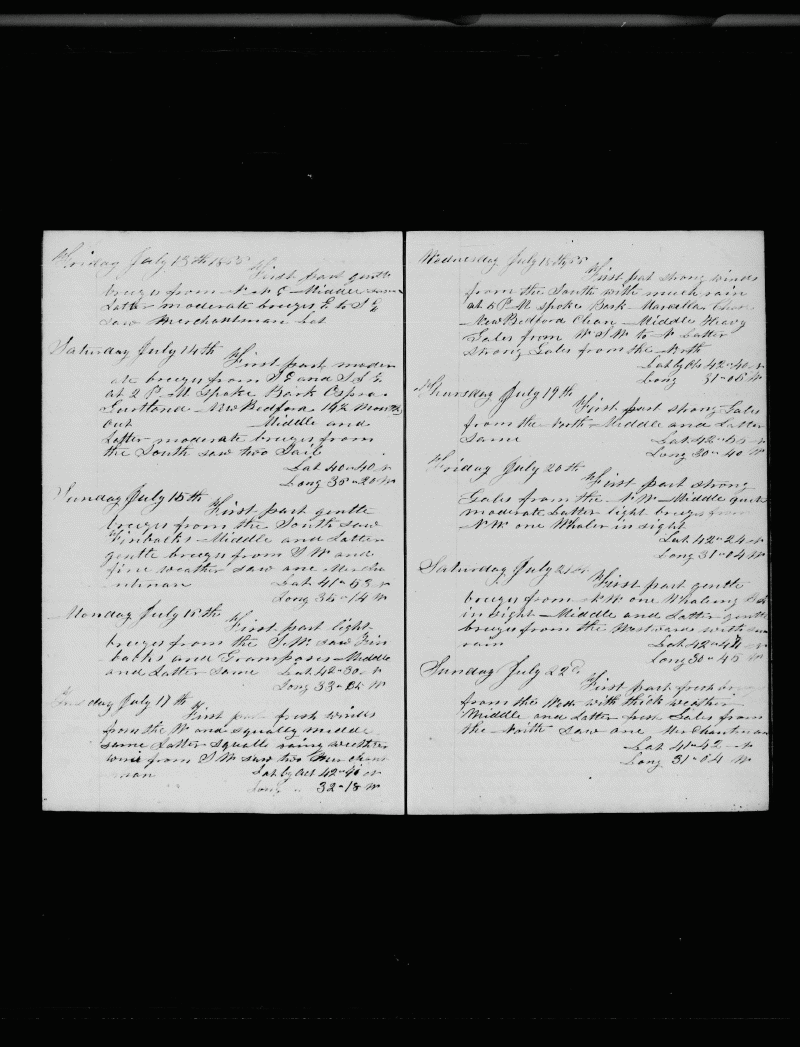 Friday July 13th 1855
First part gentle
breezes from N N E Middle same
Latter moderate breezes E to S E
saw Merchantman Lat
Saturday July 14th
First part moder
ate breezes from S E and S S E
at 2 P M Spoke Bark
New Bedford 14½ months
out Middle and
Latter moderate breezes from
the South saw two Sail
Lat 40 40 N
Long 35 20 W
Sunday July 15th
First part gentle
breezes from the South saw
Finbacks Middle and Latter
gentle breezes from S W and
fine weather saw one Mercha
ntman Lat 41 53 N
Long 35 14 W
Monday July 16th
First part light
breezes from the S W saw Fin
backs and Grampuses Middle
and Latter same Lat 42 30 N
Long 33 W
Tuesday July 17th
First part fresh winds
from the W and squally middle
same Latter squalls rainy weather
wind from S W saw two Merchant
man Lat by act 42 N
Long " 32 18 W
Wednesday July 18th 55
First part strong winds
from the South with much rain
at 6 P M spoke Bark Marcella
New Bedford Clean Middle Heavy
Gales from W S W to N Latter
strong Gales from the North
Lat by Ob 42 40 N
Long 31 05 W
Thursday July 19th
First part strong Gales
from the North Middle and Latter
same Lat 42 N
Long 30 40 W
Friday July 20th
First part strong
Gales from the N W Middle quite
moderate Latter light breezes from
N W one Whaler in sight
Lat 42 24 N
Long 31 04 W
Saturday July 21st
First part gentle
breezes from N W one Whaling
in sight Middle and Latter gentle
breezes from the Westward with some
rain Lat 42 44 N
Long 30 45 W
Sunday July 22d
First part fresh breezes
from the with thick weather
Middle and Latter fresh Gales from
the North saw one Merchantman
Lat 41 42 N
Long 31 04 W